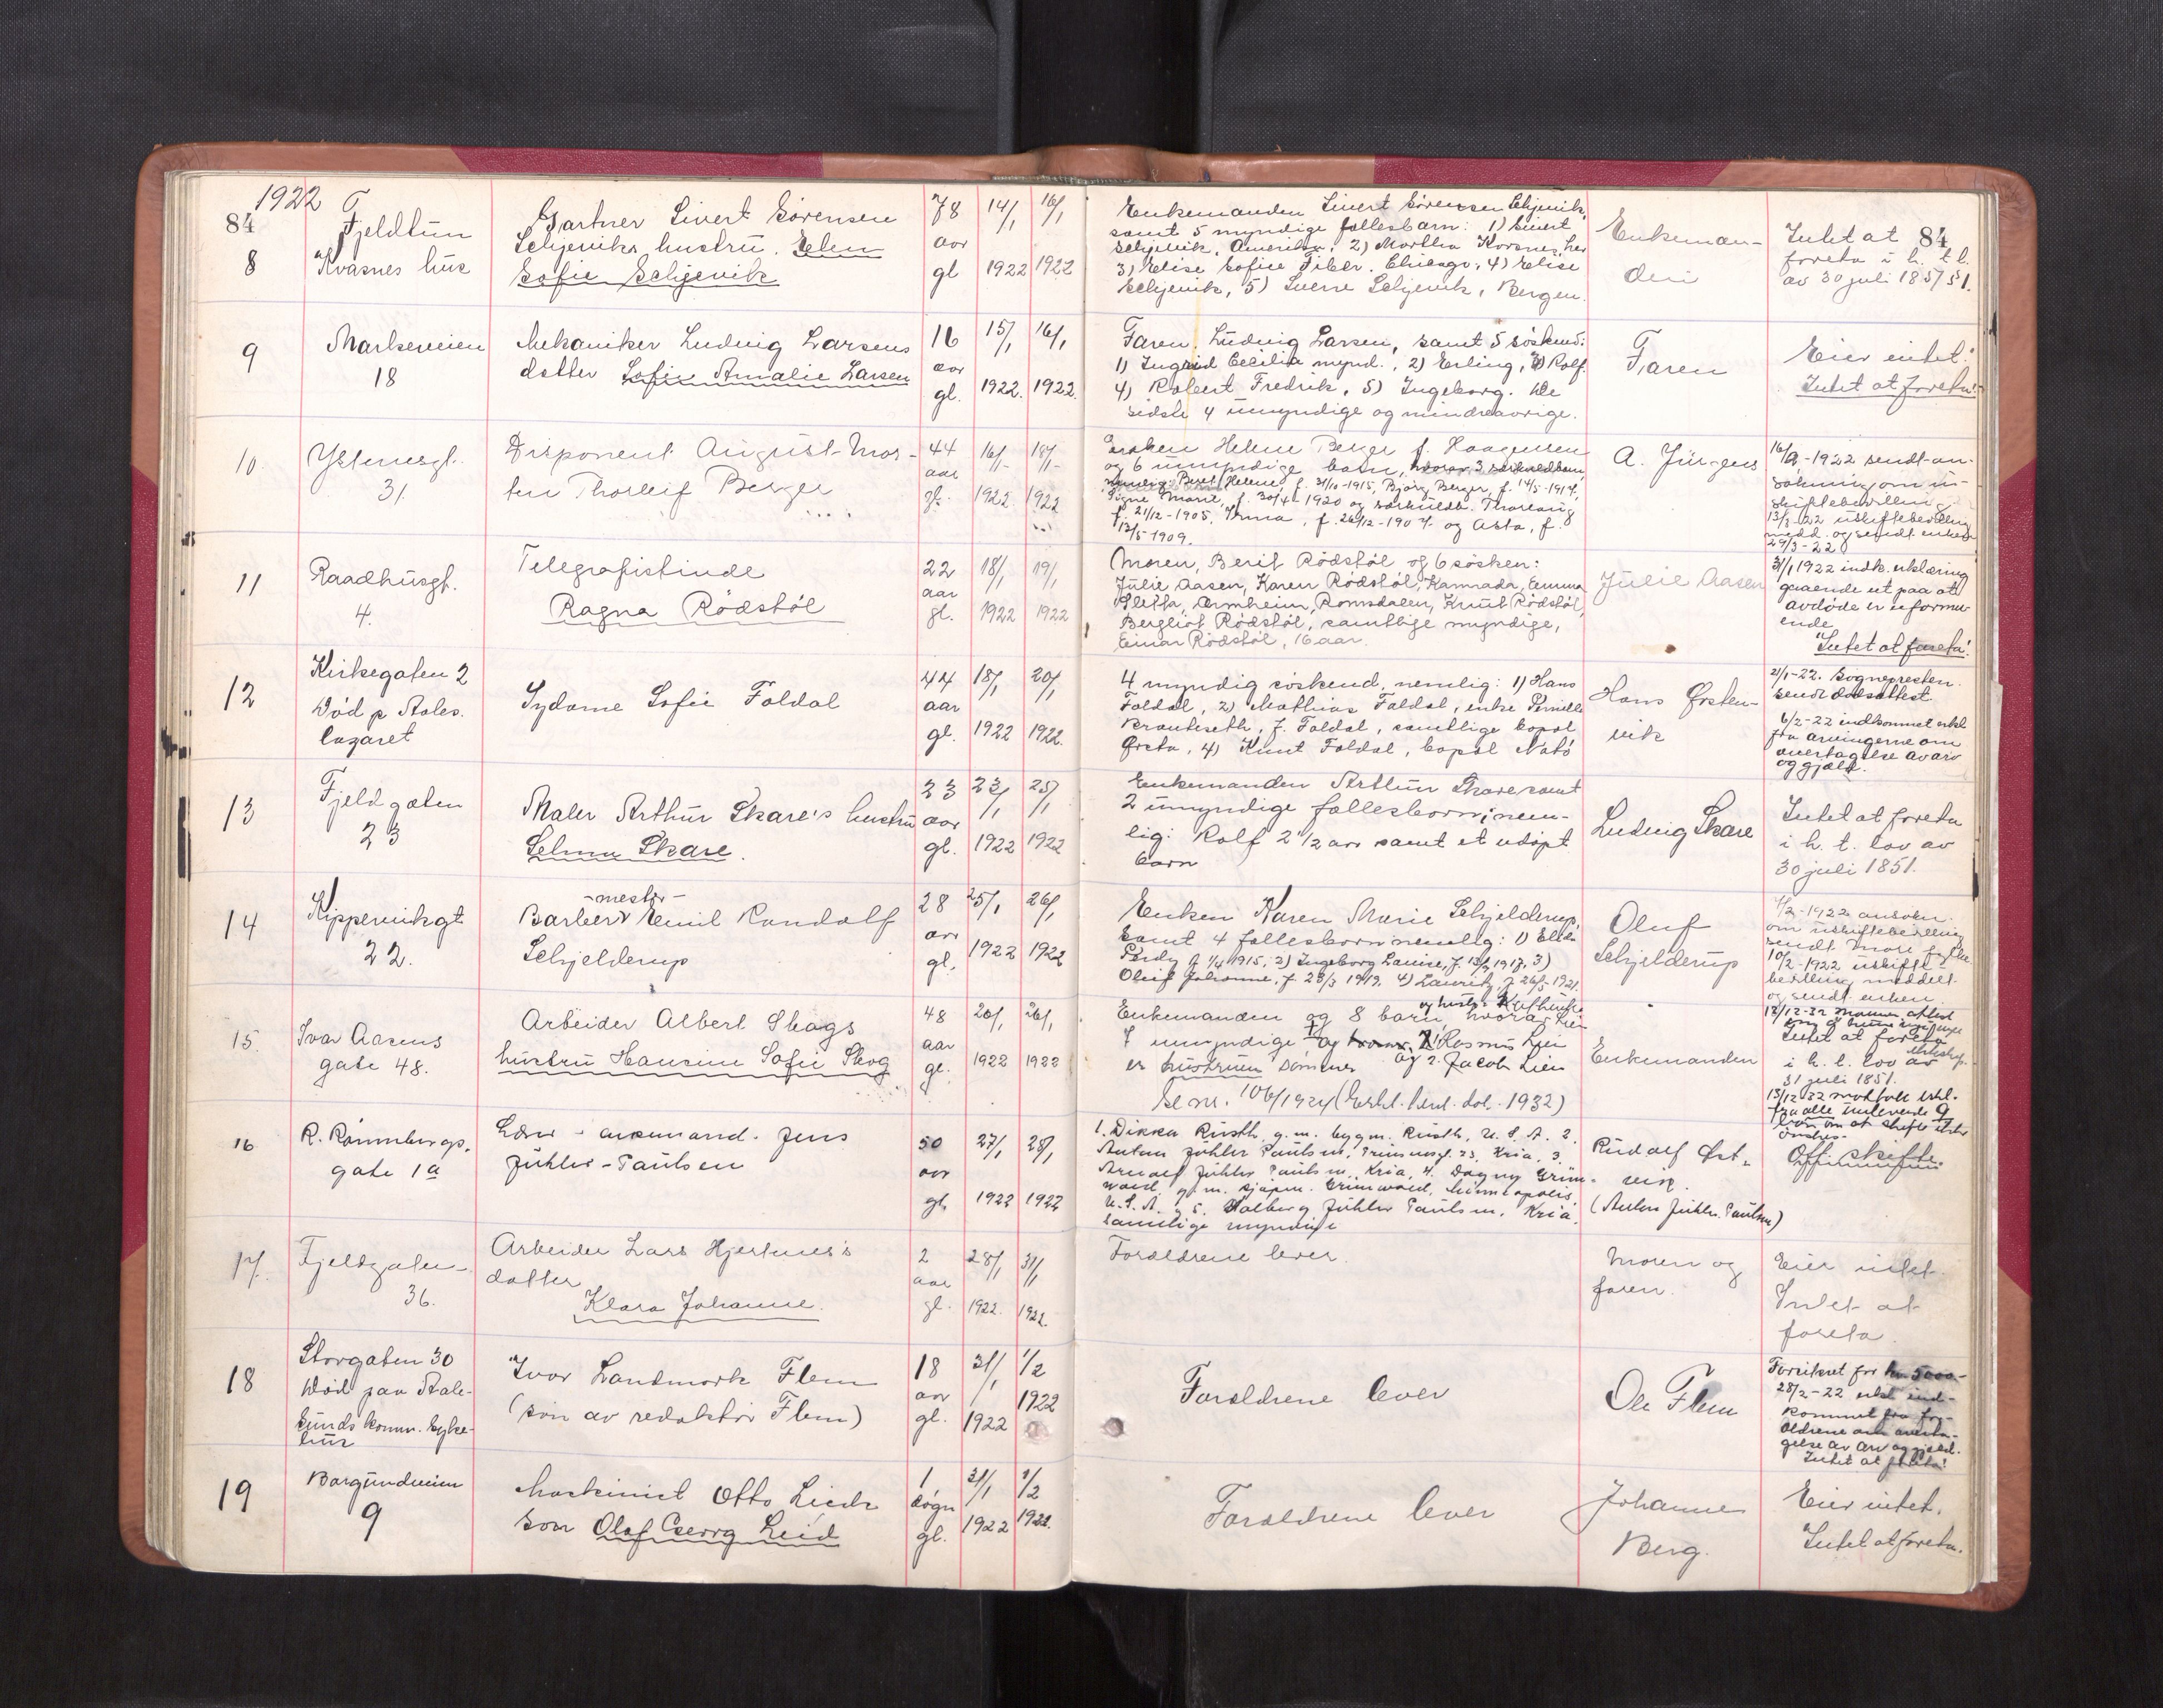 1922
84
8
Fjeldtun
Kvasnes hus
Gartner Sivert Sørensen
Schjeviks hustru. Elen
Sofie Schjevik
78
aar
gl
14/1
1922
16/1
1922
Enkemanden Sivert Sørensen Schjevik,
samt 5 myndige fællesbarn: 1) Sivert
Schjevik, Amerika, 2) Martha Korsnes, her
3) Elise Sofie Fiber. Chicago, 4) Elise
Schjevik, 5) Sverre Schjevik, Bergen.
Enkeman-
den
Intet at 84
foreta i h. t. l.
av 30 juli 1851 § 1.
9
Markeveien
18
Mekaniker Ludvig Larsens
datter Sofie Amalie Larsen
16
aar
gl.
15/1
1922.
16/1
1922.
Faren Ludvig Larsen, samt 5 søskend:
1) Ingrid Cecilia mynd., 2) Erling, 3) Rolf.
4) Robert Fredrik, 5) Ingeborg. De
sidste 4 umyndige og mindreaarige.
Faren
Eier intet.
Intet at foreta.
10.
Ystenesgt.
31.
Disponent August Mor-
ten Thorleif Berger
44
aar
gl.
16/1
1922
18/1
1922
Enken Helene Berger f. Haagensen
og 6 umyndige barn, hvorav 3 særkuldbarn,
nemlig: Berit Helene f. 31/10-1915, Bjørg Berger, f. 14/5-1917,
Signe Marie, f. 30/4-1920 og særkuldb. Thorleif
f. 21/12-1905, Irma, f. 26/12-1907 og Asta, f.
12/5-1909.
A. Jürgens
16/2-1922 sendt an-
søkning om u-
skiftebevilling
13/3-22 uskiftebevilling
medd. og sendt enken
29/3-22
11
Raadhusgt.
4.
Telegrafistinde
Ragna Rödstöl
22
aar
gl.
18/1
1922
19/1
1922
Moren, Berit Rödstöl og 6 søsken:
Julie Aasen, Karen Rödstöl, Kanada, Emma
Sletta, Armheim, Romsdalen, Knut Rödstöl,
Bergliot Rödstöl, samtlige myndige,
Einar Rödstöl, 16 aar.
Julie Aasen
31/1 1922 indk. erklæring
gaaende ut paa at
avdöde er uformu-
ende
Intet at foreta.
12
Kirkegaten 2
Död p Aales.
lazaret
Sydame Sofie Foldal
44
aar
gl.
18/1
1922
20/1
1922.
4 myndig søskend, nemlig: 1) Hans
Foldal, 2) Mathias Foldal, enke Pernille
Brauteseth, f. Foldal, samtlige bopæl
Ørsta, 4) Knut Foldal, bopæl Natö
Hans Ørsten-
vik
21/1-22. Sognepresten
sendt dødsattest.
6/2-22 indkommet erkl
fra arvingerne om
overtagelse av arv
og gjæld.
13
Fjeldgaten
23
Maler Arthur Skare's hustru
Selma Skare.
23
aar
gl.
23/1
1922
25/1
1922
Enkemanden Arthur Skare samt
2 umyndige fællesbarn; nem-
lig: Rolf 2 1/2 aar samt et udöpt
barn
Ludvig Skare
Intet at foreta
i h. t. lov av
30 juli 1851.
14
Kippervikgt
22.
-mester-
Barber Emil Randolf
Schjelderup
28
aar
gl.
25/1
1922
26/1
1922
Enken Karen Marie Schjelderup,
samt 4 fællesbarn nemlig: 1) Elida
Perdy f. 1/4 1915, 2) Ingeborg Lauise, f. 13/3 1917, 3)
Oleif Johanne, f. 23/3 1919. 4) Lauritz, f. 26/5-1921.
Oluf
Schjelderup
4/2-1922 ansøkn.
om uskiftebevilling
sendt Møre fylke
10/2-1922 uskifte-
bevilling meddelt
og sendt enken
15.
Ivar Aasens
gate 48.
Arbeider Albert Skogs
hustru Hansine Sofie Skog
48
aar
gl.
20/1
1922
26/1
1922
Enkemanden og 8 barn hvorav
7 umyndige og Rasmus Lien
er hustruens sønner og 2. Jacob Lien
Se nr. 106/1924 (Eskl. hent. dok. 1932)
Enkemanden
Intet at foreta
i h. t. lov av
31 juli 1851.
16
R. Rønnebergs.
gate 1a
Lærer - avismand. Jens
Jühler-Paulsen
50
aar
gl.
27/1
1922
28/1
1922
1. Dikka Rusth g. m. bygm. Rusth, U. S. A. 2.
Anton Jühler Paulsen, 23. Kria. 3.
Arnolf Jühler Paulsen, Kria, 4. Dagny Grün-
wald, g. m. kjøpm. Grünwald, Minneapolis,
U. S. A. 5. Halberg Jühler Paulsen, Kria.
samtlige myndige
Rudolf Øst-
vik
(Anton Jühler. Paulsen)
Off. skifte.
17.
Fjeldgaten
36.
Arbeider Lars Hjertnes's
datter
Klara Johanne.
2
aar
gl.
28/1
1922.
31/1
1922.
Forældrene lever.
Moren og
faren.
Eier intet.
Intet at
foreta.
18
Storgaten 30
Död paa Aale-
sunds komm. syke-
hus
Ivar Landmark Flem
(søn av redaktør Flem)
18
aar
gl.
31/1
1922
1/2
1922
Forældrene lever
Ole Flem
Forsikret for kr 5000-
28/2-22 erkl. ind-
kommet fra for-
ældrene om overta-
gelse av arv og gjæld.
Intet at foreta.
19
Borgundveien
9
Maskinist Otto Lieds
søn Olaf Georg Leid
1
døgn
gl.
31/1
1922
1/2
1922.
Forældrene lever
Johanne
Berg.
Eier intet.
Intet at foreta.